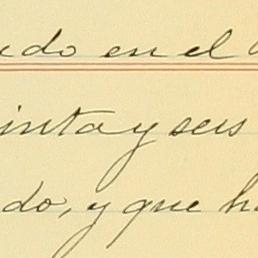 ido en el
inta y seis
do, y que ha